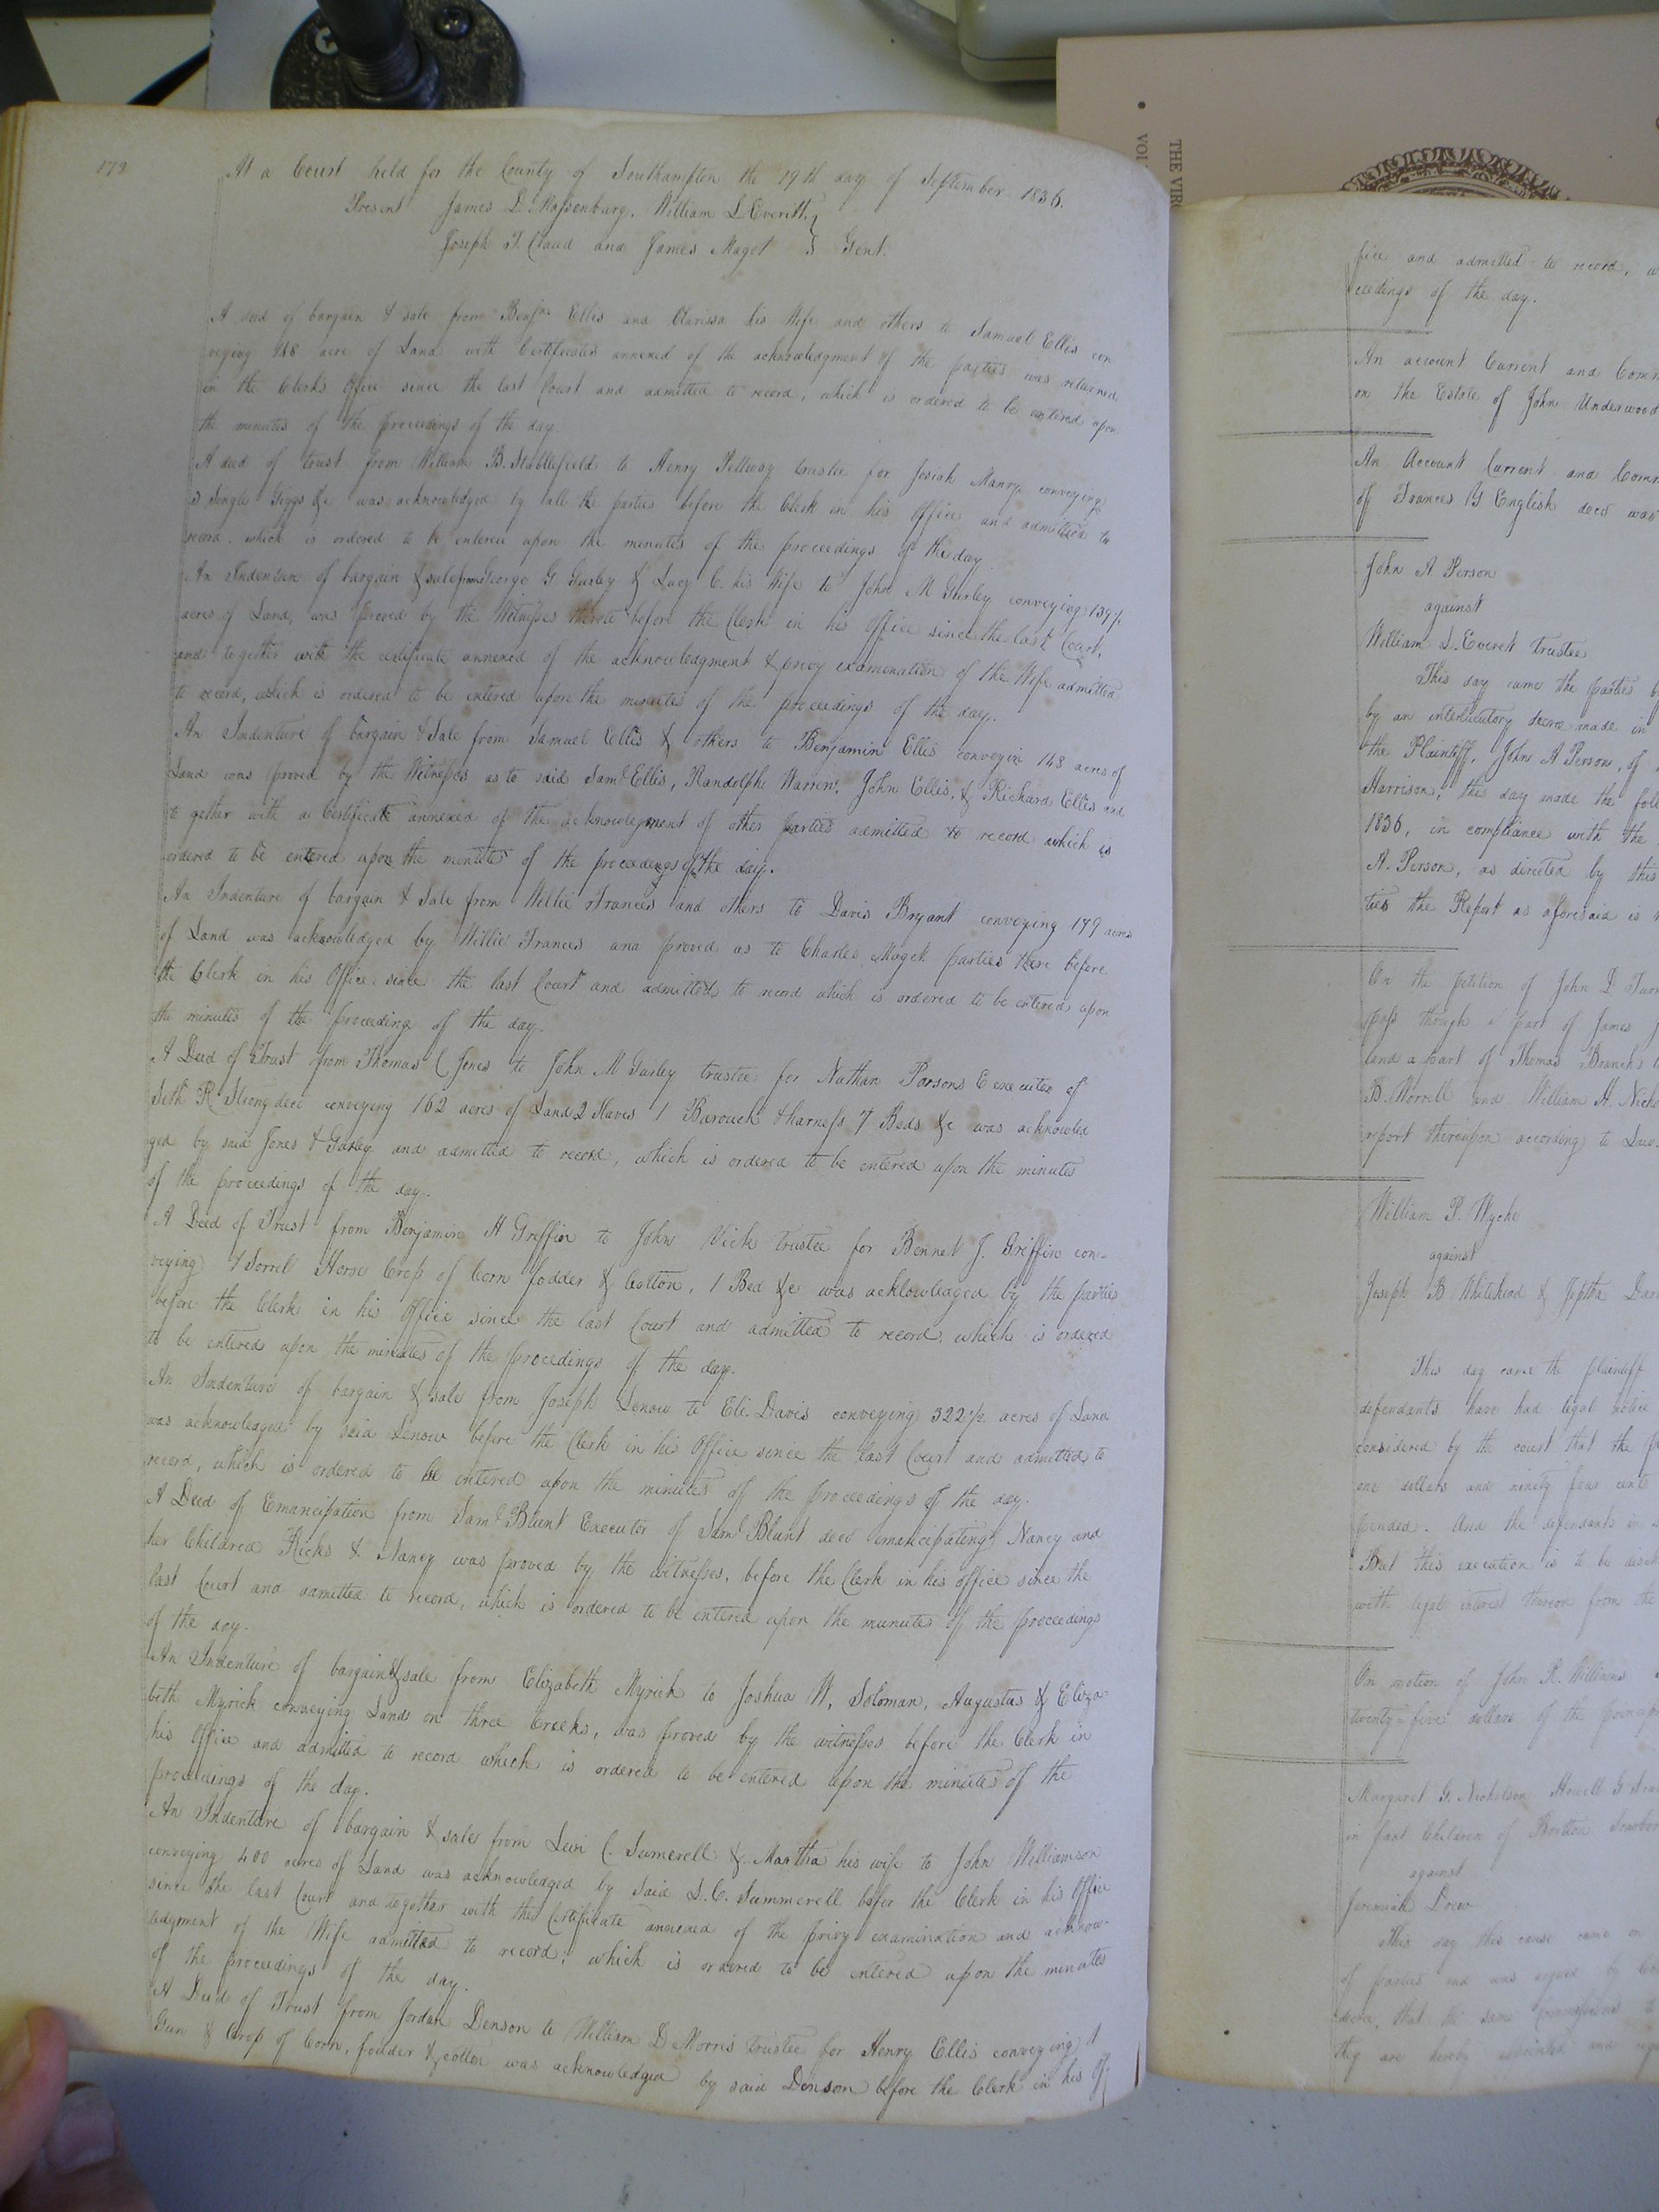 179
At a Court held for the County of Southampton the 19th day of September 1836.
Present James D. Massenburg, William L. Everitt,
Joseph T. Claud and James Maget } Gent.
A deed of bargain & sale from Benjan Ellis and Clarissa his Wife and others to Samuel Ellis con
veying acre of Land with Certificates annexed of the acknowledgment of the parties was returned
in the Clerks Office since the last Court and admitted to record, which is ordered to be entered upon
the minutes of the proceedings of the day.
A deed of trust from William B. Stubblefield to Henry Pettway trustee for Josiah Manry, conveying
Single Giggs &c was acknowledged by all the parties before the Clerk in his Office and admitted to
record. which is ordered to be entered upon the minutes of the proceedings of the day.
An Indenture of bargain & sale from George G Gurley & Lucy C. his Wife to John M Gurley conveying 139½
acres of Land, was proved by the Witnesses thereto before the Clerk in his Office since the last Court,
and together with the certificate annexed of the acknowledgment & privy examination of the Wife admitted
to record, which is ordered to be entered upon the minutes of the proceedings of the day.
An Indenture of bargain & Sale from Samuel Ellis & others to Benjamin Ellis conveyin 148 acres of
Land was proved by the Witnesses as to said Saml Ellis, Randolph Warren, John Ellis, & Richard Ellis and
to gether with a Certificate annexed of the acknowlegment of other parties admitted to record which is
ordered to be entered upon the minutes of the proceedings of the day.
An Indenture of bargain & Sale from Willie Frances and others to Davis Bryant conveying 179 acres
of Land was acknowledged by Willie Frances and proved as to Charles Magett parties there before
the Clerk in his Office since the last Court and admitted to record which is ordered to be entered upon
the minutes of the proceeding of the day.
A Deed of Trust from Thomas C Jones to John M Gurley trustee for Nathan Parsons Executor of
Seth R Strong decd conveying 162 acres of Land 2 Slaves 1 Barouch & harness 7 Beds &c was acknowled
ged by said Jones & Gurley and admitted to record, which is ordered to be entered upon the minutes
of the proceedings of the day.
A Deed of Trust from Benjamin H Griffin to John Vick trustee for Bennet J. Griffin con-
veying 1 Sorrel Horse Crop of Corn fodder & Cotton, 1 Bed &c was acklowledged by the parties
before the Clerk in his Office since the last Court and admitted to record. which is ordered
to be entered upon the minutes of the procedings of the day.
An Indenture of bargain & sale from Joseph Lenow to Eli. Davis conveying 322½ acres of Land
was acknowledged by said Lenow before the Clerk in his Office since the last Court and admitted to
record, which is ordered to be entered upon the minutes of the proceedings of the day.
A Deed of Emancipation from Saml Blunt Executor of Saml Blunt decd emancipating Nancy and
her Children Ricks & Nancy was proved by the witnesses, before the Clerk in his office since the
last Court and admitted to record, which is ordered to be entered upon the minutes of the proceedings
of the day.
An Indenture of bargain & sale from Elizabeth Myrick to Joshua W, Soloman, Augustus & Eliza-
beth Myrick conveying Lands on three Creeks, was proved by the witnesses before the Clerk in
his Office and admitted to record which is ordered to be entered upon the minutes of the
proceedings of the day.
An Indenture of bargain & sale from Levi C. Sumerell & Martha his wife to John Williamson
conveying 400 acres of Land was acknowledged by said L.C. Summerell befor the Clerk in his Office
since the last Court and together with the Certificate annexed of the privy examination and acknow-
ledgment of the Wife admitted to record; which is ordered to be entered upon the minutes
of the proceedings of the day.
A Deed of Trust from Jordan Denson to William D Morris trustee for Henry Ellis conveying 1
Gun & Crop of Corn, fodder & cotton was acknowledged by said Denson before the Clerk in his Of
THE VIR
VOL
fice and admitted to record, w
ceedings of the day.
An account Current and Comm
on the Estate of John Underwood
An Account Current and Comm
of Frances Y English decd was
John A Person
against
William L. Everett trustee
This day came the parties b
by an interlucutory decree made in
the Plaintiff, John A Person, of
Harrison, this day made the foll
1836, in compliance with the
A. Person, as directed by this
the Report as aforesaid is
On the petition of John D
pass though a part of James J
land a part of Thomas Branch's
B. Worrell and William H. Nich
report thereupon according to Law.
William P. Wyche
against
Joseph B Whitehead & Jeptha Dar
This day came the plaintiff
defendants have had legal notice
considered by the court that the p
one dollars and ninety four cents
pended. And the defendants in
But this execution is to be disch
with legal interest thereon from the
On motion of John R. Williams
twenty five dollars of the princip
Margaret G. Nicholson Howell G
in fant Children of Britton
against
Jeremiah Drew
This day this cause came on
of parties and was argued by
decree, that the same
they are hereby appointed and